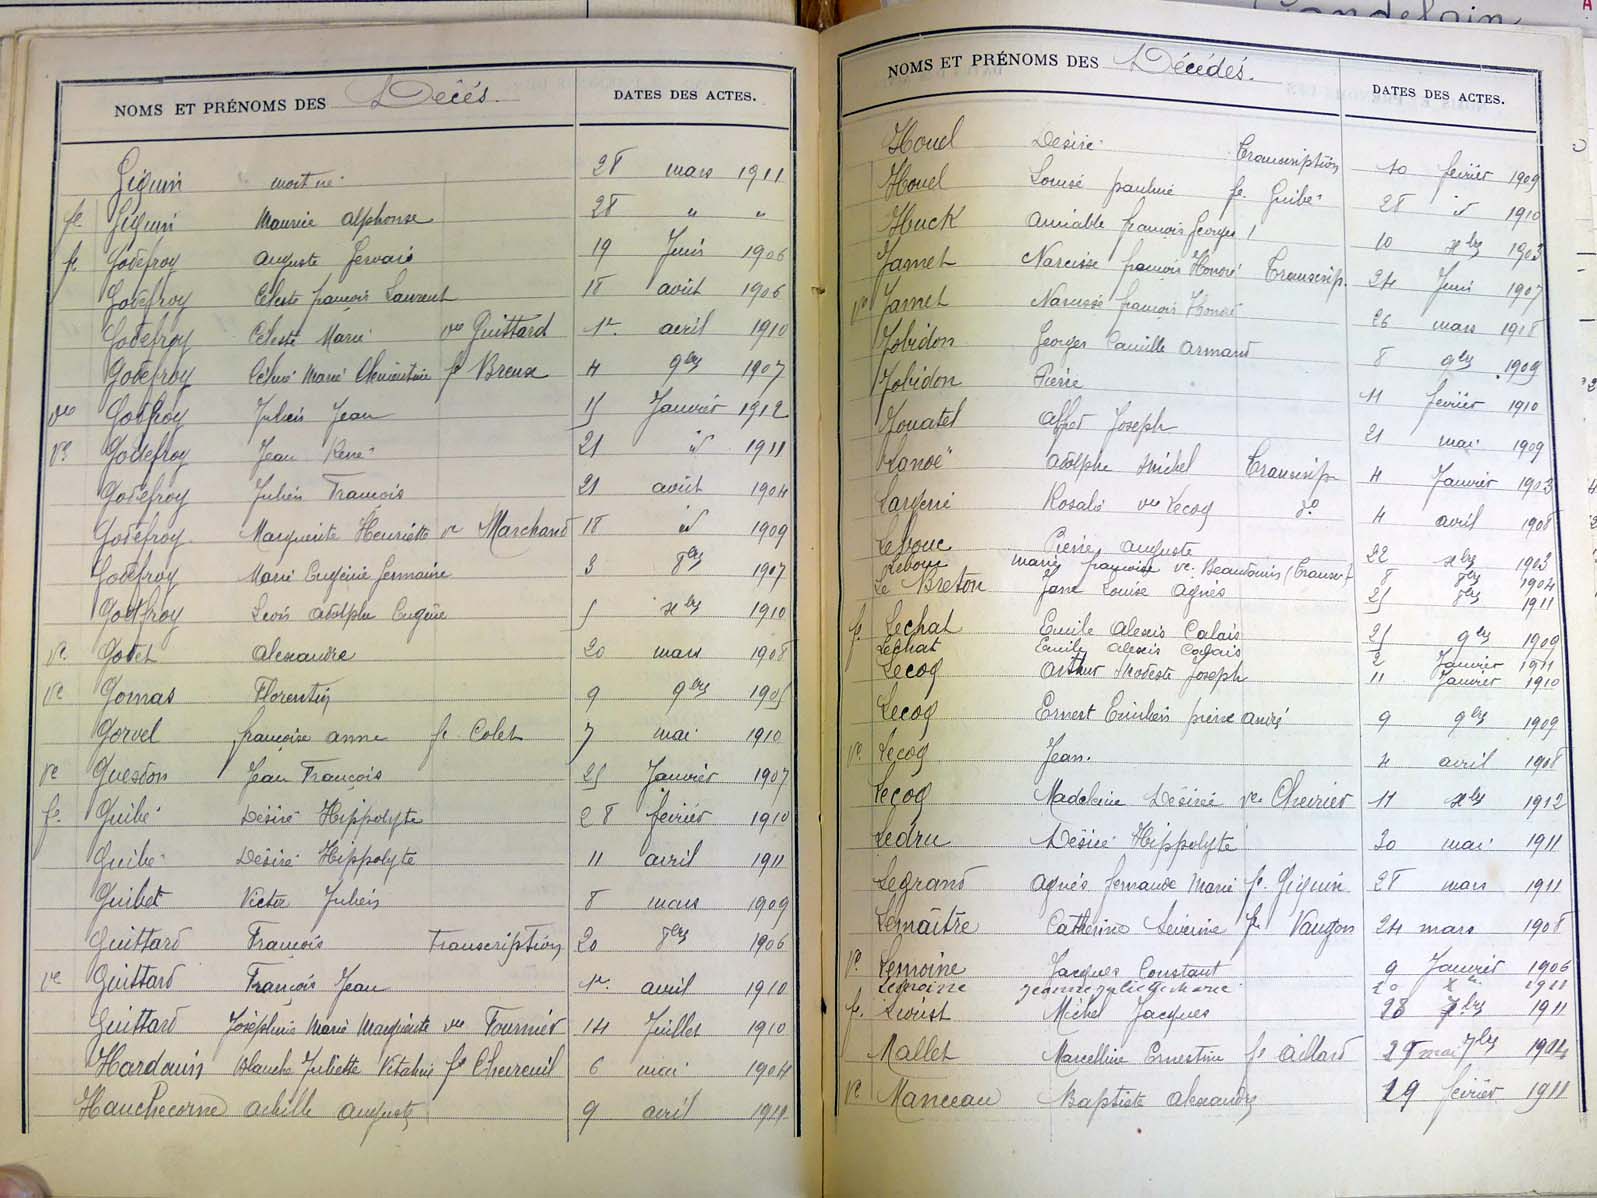 Gandelain
NOMS ET PRÉNOMS DES Décés. DATES DES ACTES.
Giguin mort né 28 mars 1911
fe. Giguin Maurice Alphonse 28 " "
fe Godefroy Auguste Gervais 19 Juin 1906
Godefroy Céleste françois Laurent 18 août 1906
Godefroy Céleste Marie vve Guittard 1er avril 1910
Godefroy Marie Clémentine fe Breux 4 9bre 1907
ve Godefroy Julien Jean 15 Janvier 1912
ve Godefroy Jean René 21 id 1911
Godefroy Julien François 21 août 1904
Godefroy Marguerite Henriette ve Marchand 18 id 1909
Godefroy Marie Eugénie Germaine 3 8bre 1907
Godefroy Léon Adolphe Eugène 5 xbre 1910
ve. Godet Alexandre 20 mars 1908
ve Gomas Florentin 9 9bre 1905
Gorvel françoise anne fe Colet 7 mai 1910
ve Guesdon Jean François 25 Janvier 1907
fe. Guibé Désiré Hippolyte 28 février 1910
Guibé Désiré Hippolyte 11 avril 1911
Guibet Victor Julien 8 mars 1909
Guittard François Transcription 20 8bre 1906
ve Guittard François Jean 1er avril 1910
Guittard Joséphine Marie Marguerite vve Fournier 14 Juillet 1910
Hardouin Blanche Juliette Vitaline fe Chevreuil 6 mai 1904
Hauchecorne Achille Auguste 9 avril 1911
NOMS ET PRÉNOMS DES Décédés. DATES DES ACTES.
Houel Désiré Transcription 10 février 1909
Houel Louise pauline fe. Guibé 28 id 1910
Huck Amiable françois Georges 10 xbre 1903
Jamet Narcisse françois Honoré Transcrip. 24 Juin 1907
ve Jamet Narcisse françois Honoré 26 mars 1918
Jobidon Georges Camille Armand 8 9bre 1909
Jobidon Pierre 11 février 1910
Jouatel Alfred Joseph 21 mai 1909
Lanoë Adolphe Michel Transcrip 4 Janvier 1903
Rosalie vve Lecoq do 4 avril 1908
Lebouc Pierre Auguste 22 xbre 1903
Lebouc Marie françoise ve. Beaudouin (Transcr.) 8 8bre 1904
Le Breton Jane Louise Agnès 25 8bre 1911
fe. Lechat Emile Alexis Calais 25 9bre 1909
Lechat Emile Alexis Calais 2 Janvier 1911
Lecoq Arthur Modeste Joseph 11 Janvier 1910
Lecoq Ernest Emilien pierre andré 9 9bre 1909
ve. Lecoq Jean. 4 avril 1908
Lecoq Madeleine Désirée vve Chevrier 11 xbre 1912
Ledru Désiré Hippolyte 30 mai 1911
Legrand Agnès fernande Marie fe. Giguin 28 mars 1911
Lemaître Catherine Séverine fe Vaugon 24 mars 1908
ve. Lemoine Jacques Constant 9 Janvier 1906
Lemoine Jeanne Julie Marie 20 xbre 1911
fe. Liorist Michel Jacques 28 7bre 1911
Mallet Marcelline Ernestine fe Aillard 29 7bre 1904
ve Manceau Baptiste Alexandre 19 février 1911